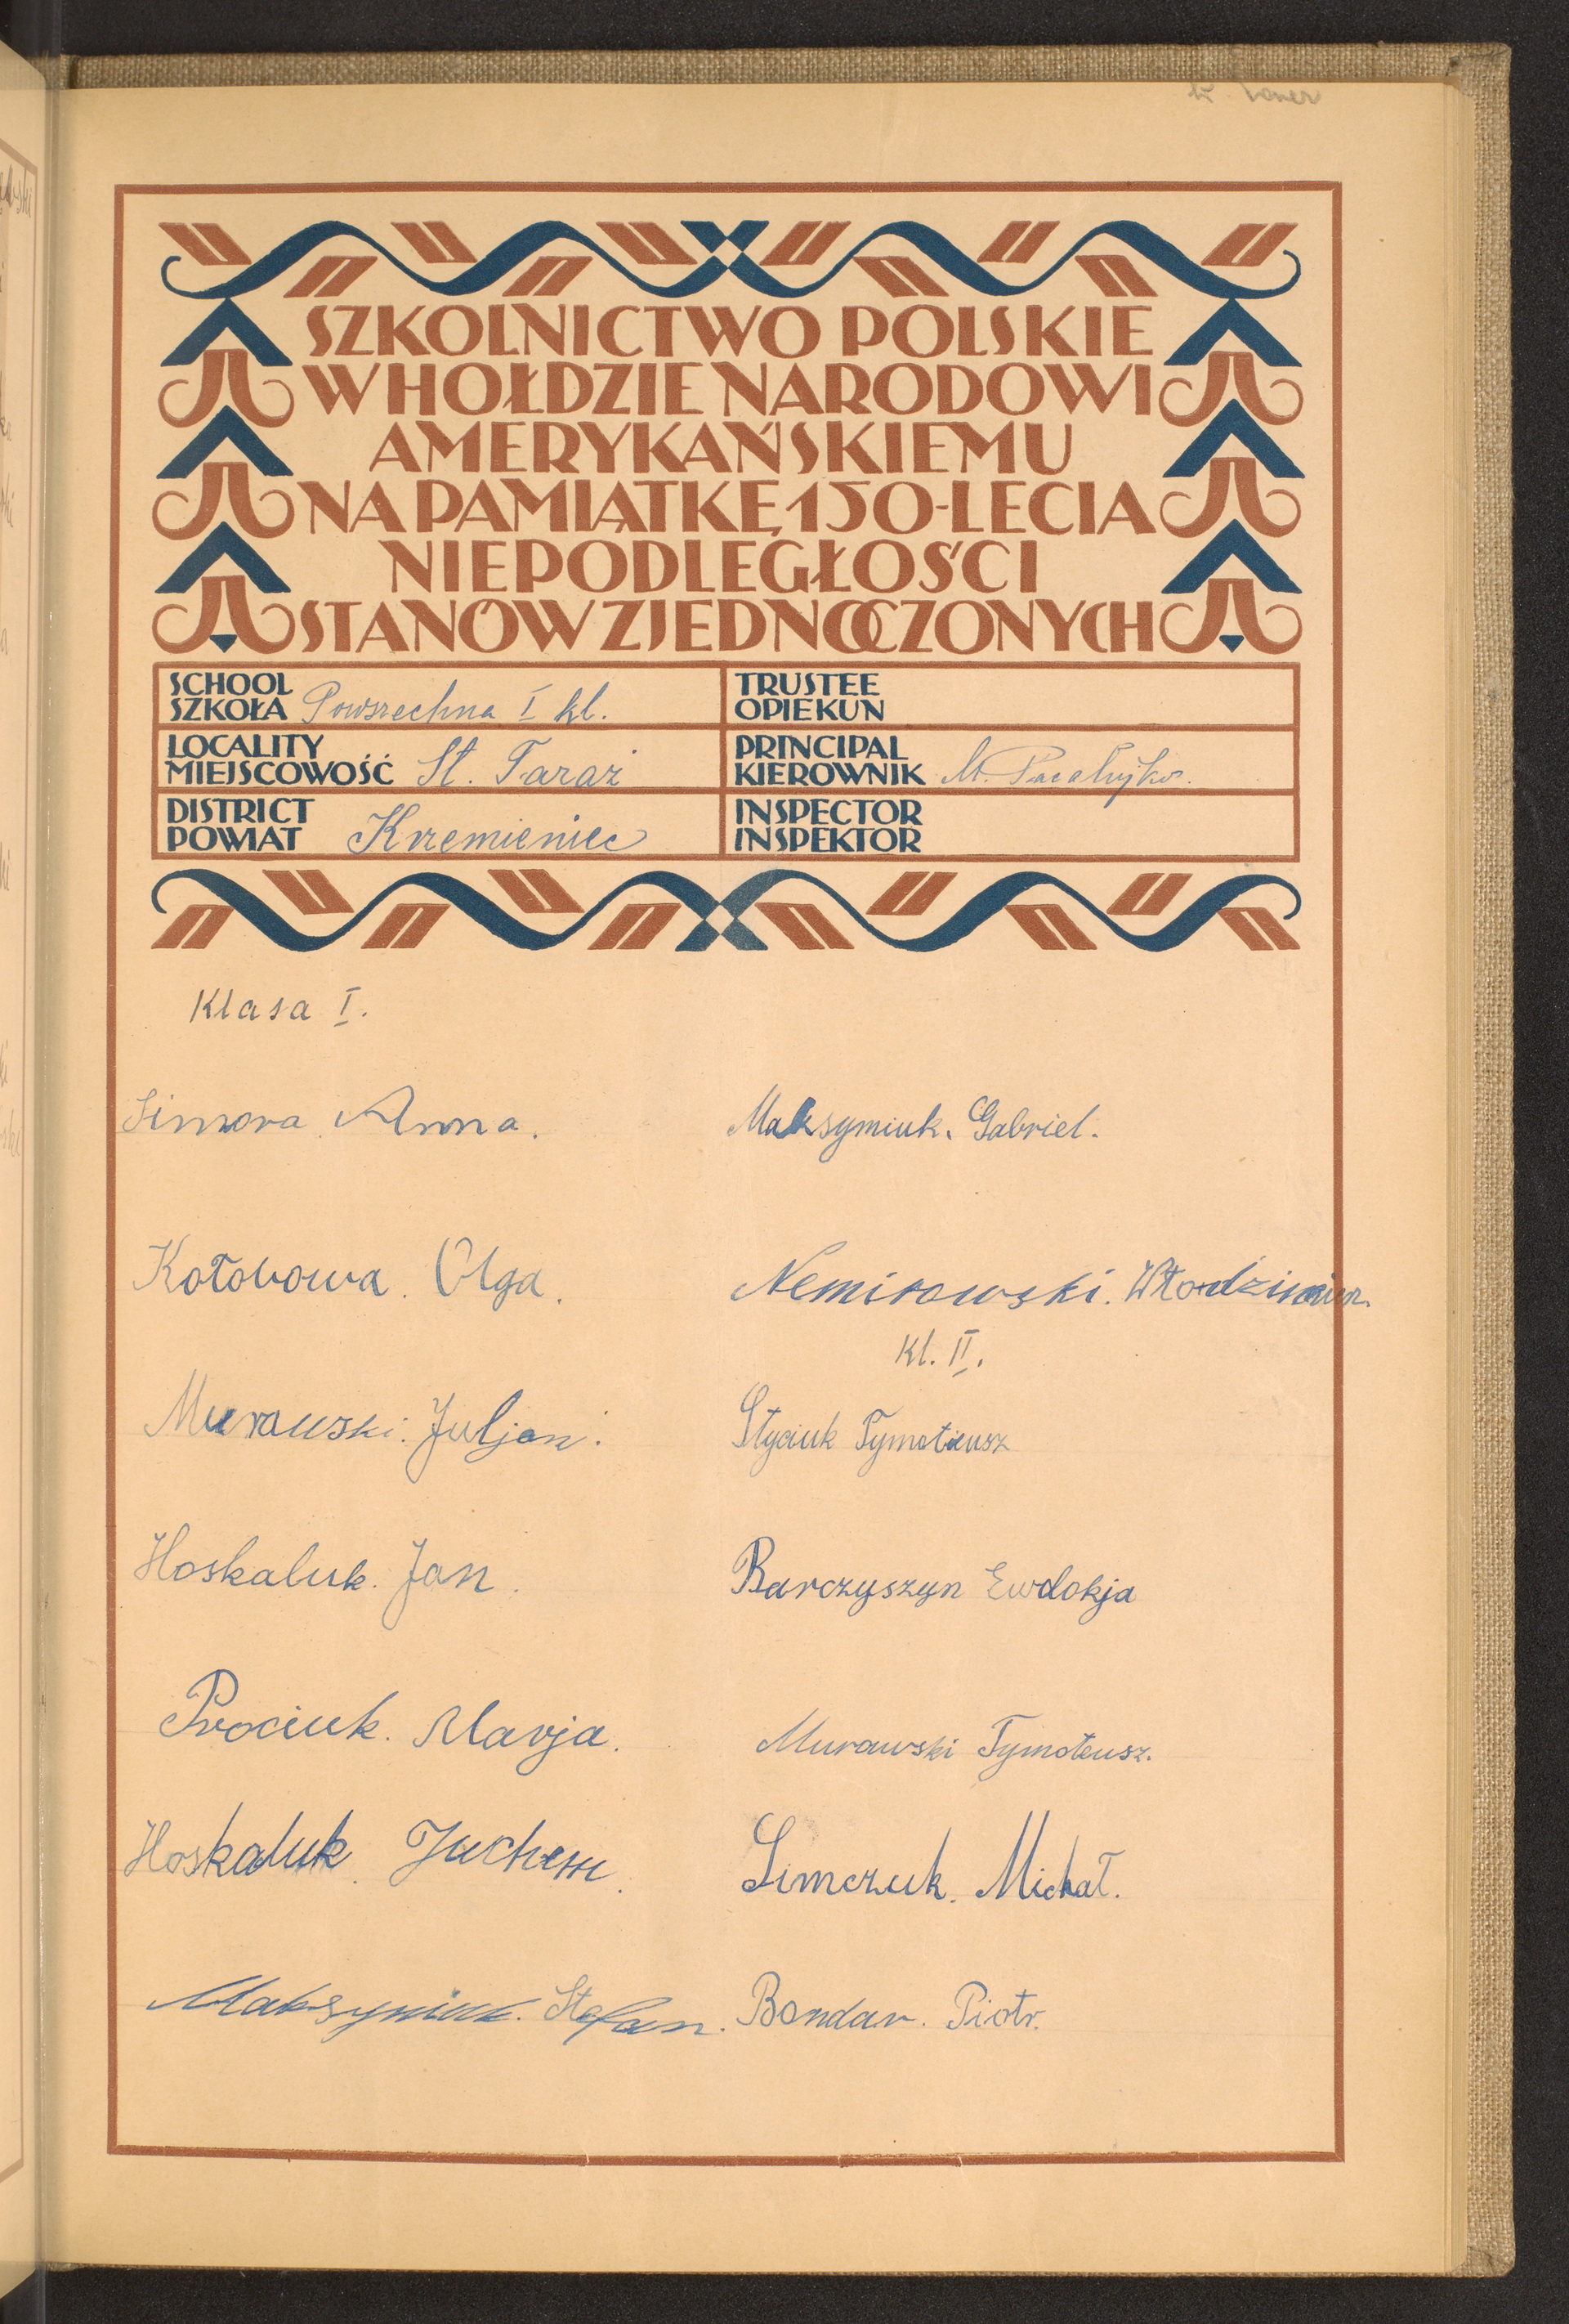 SZKOLNICTWO POLSKIE
W HOŁDZIE NARODOWI
AMERYKAŃSKIEMU
NA PAMIĄTKĘ 150-LECIA
NIEPODLEGŁOŚCI
STANÓW ZJEDNOCZONYCH
SCHOOL
SZKOŁA Powszechna I kl.
LOCALITY
MIEJSCOWOŚĆ St. Taraż
DISTRICT
POWIAT Krzemieniec
TRUSTEE
OPIEKUN
PRINCIPAL
KIEROWNIK M.
INSPECTOR
INSPEKTOR
Klasa I.
Simora Anna.
Kotobowa. Olga.
Murawski. Juljan.
Hoskaluk. Jan.
Prociuk. Marja.
Hoskaluk. Juchem.
Maksymiuk. Stefan.
Maksymiuk. Gabriel.
Nemirowski. Włodzimierz.
Kl. II.
Styciuk Tymoteusz
Barczyszyn Ewdokja
Murawski Tymoteusz.
Simczuk. Michał.
Bondar. Piotr.